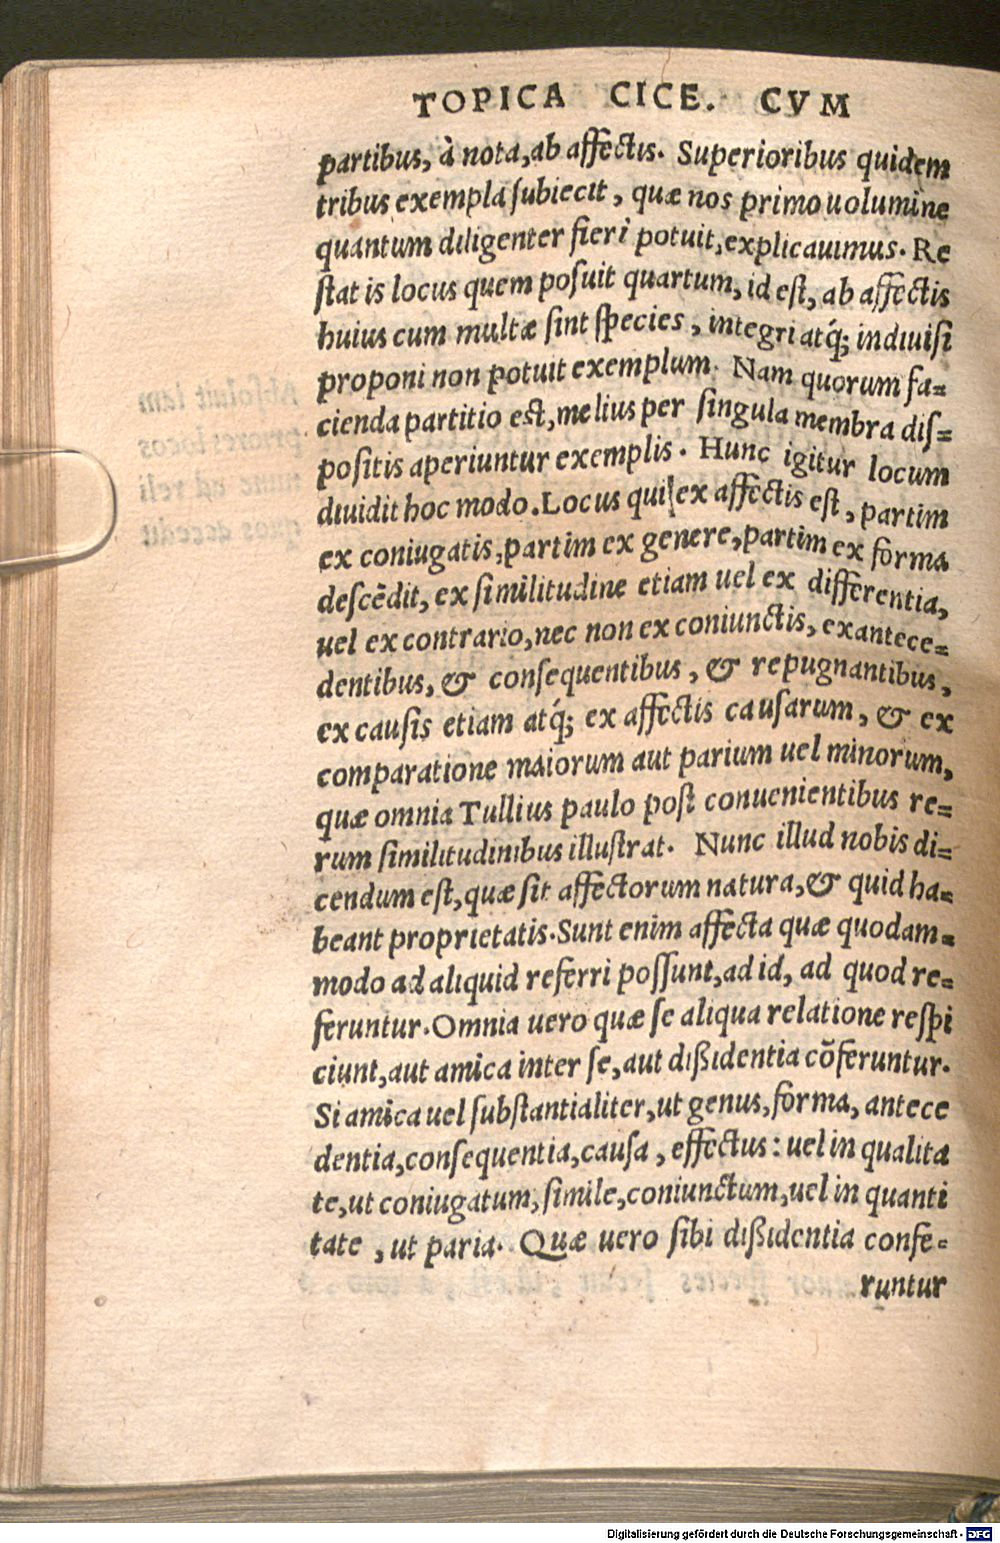 TOPICA CICE. CVM
partibus, à nota, ab affectis. Superioribus quidem
tribus exempla subiecit, quæ nos primo uolumine
quantum diligenter fieri potuit, explicauimus. Re
stat is locus quem posuit quartum, id est, ab affectis
huius cum multæ sint species, integri atq́; indiuisi
proponi non potuit exemplum. Nam quorum fa=
cienda partitio est, melius per singula membra dis=
positis aperiuntur exemplis. Hunc igitur locum
diuidit hoc modo. Locus qui ex affectis est, partim
ex coniugatis, partim ex genere, partim ex forma
descēdit, ex similitudine etiam uel ex differentia,
uel ex contrario, nec non ex coniunctis, ex antece=
dentibus, & consequentibus, & repugnantibus,
ex causis etiam atq́; ex affectis causarum, & ex
comparatione maiorum aut parium uel minorum,
quæ omnia Tullius paulo post conuenientibus re=
rum similitudinibus illustrat. Nunc illud nobis di=
cendum est, quæ sit affectorum natura, & quid ha=
beant proprietatis. Sunt enim affecta quæ quodam=
modo ad aliquid referri possunt, ad id, ad quod re=
feruntur. Omnia uero quæ se aliqua relatione respi
ciunt, aut amica inter se, aut dißidentia cōferuntur.
Si amica uel substantialiter, ut genus, forma, antece
dentia, consequentia, causa, effectus: uel in qualita
te, ut coniugatum, simile, coniunctum, uel in quanti
tate, ut paria. Quæ uero sibi dißidentia confe=
runtur
Digitalisierung gefördert durch die Deutsche Forschungsgemeinschaft - DFG